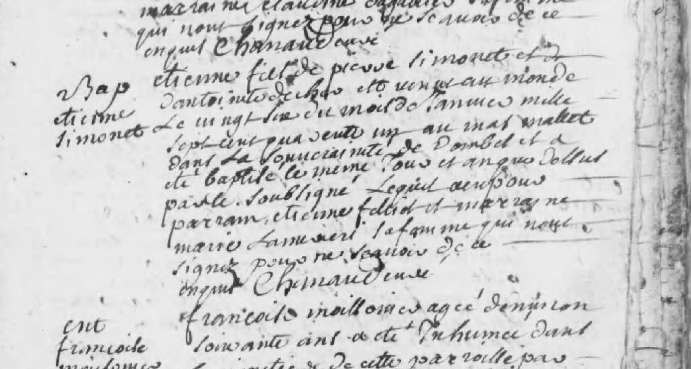 marraine Claudine
qui nont signez pour ne scavoir de ce
enquis Chanaud curé
Bap
etienne
simonet
etienne fils de pierre simonet et d
antoinete de est venu au monde
Le vingt six du mois de Janvier mille
sept cent quarente un au mas mallet
dans La souveraineté de Dombes et a
eté baptisé le meme Jour et an que dessus
par le soubsigné Lequel a eu pour
parrain etienne et marraine
marie sa femme qui nont
signez pour ne scavoir de ce
enquis Chanaud curé
ent
francoise
francoise agée denviron
soixante ans a eté Inhumée dans
de cette parroisse par